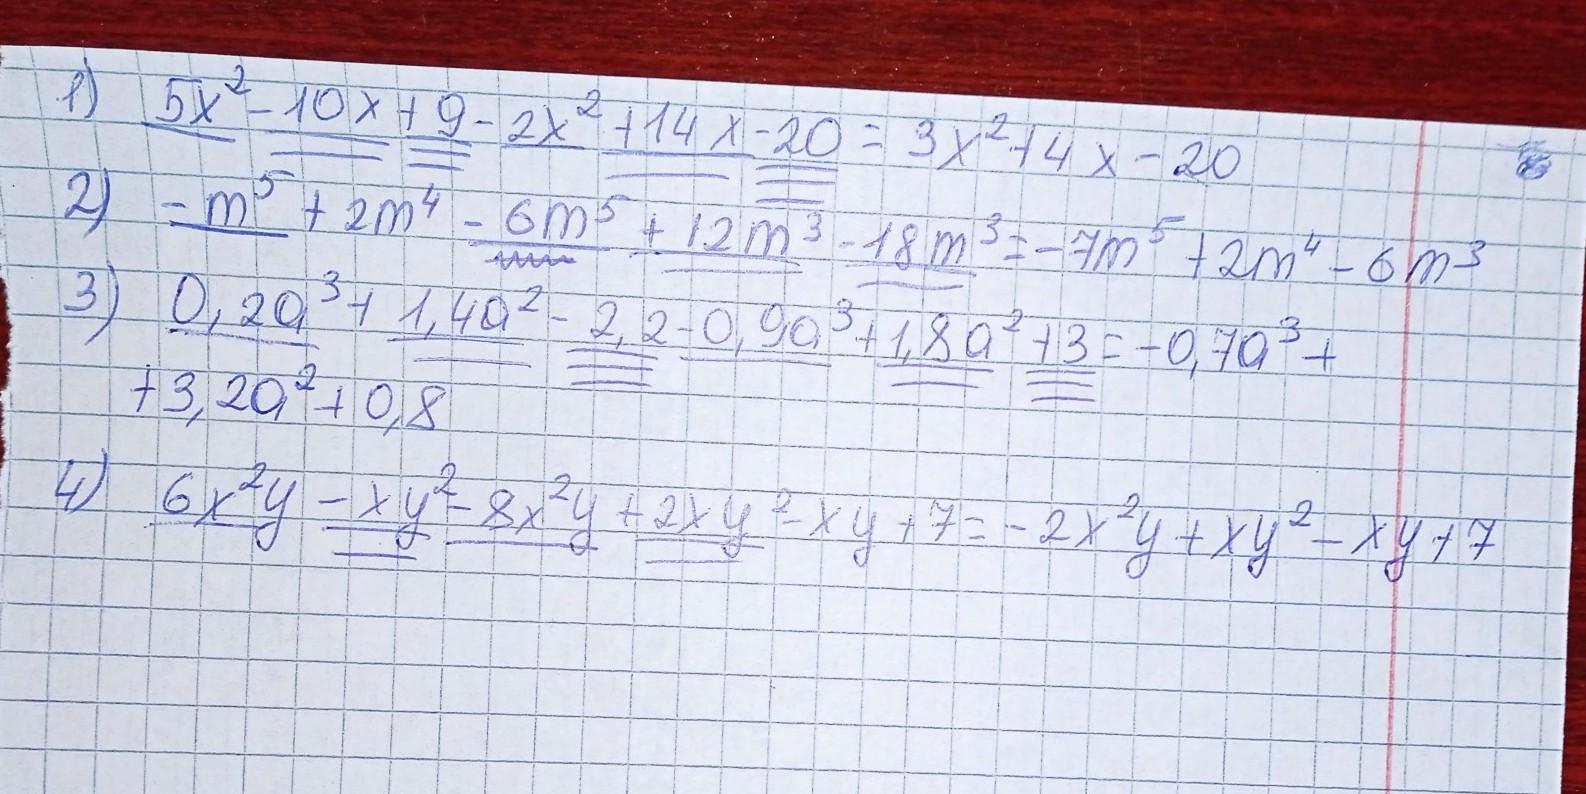 1) 5x² - 10x + 9 - 2x² + 14x - 20 = 3x² + 4x - 20
2) - m⁵ + 2m⁴ - 6m⁵ + 12m³ - 18m³ = - 7m⁵ + 2m⁴ - 6m³
3) 0,2a³ + 1,4a² - 2,2 - 0,9a³ + 1,8a² + 3 = - 0,7a³ +
+ 3,2a² + 0,8
4) 6x²y - xy² - 8x²y + 2xy² - xy + 7 = - 2x²y + xy² - xy + 7